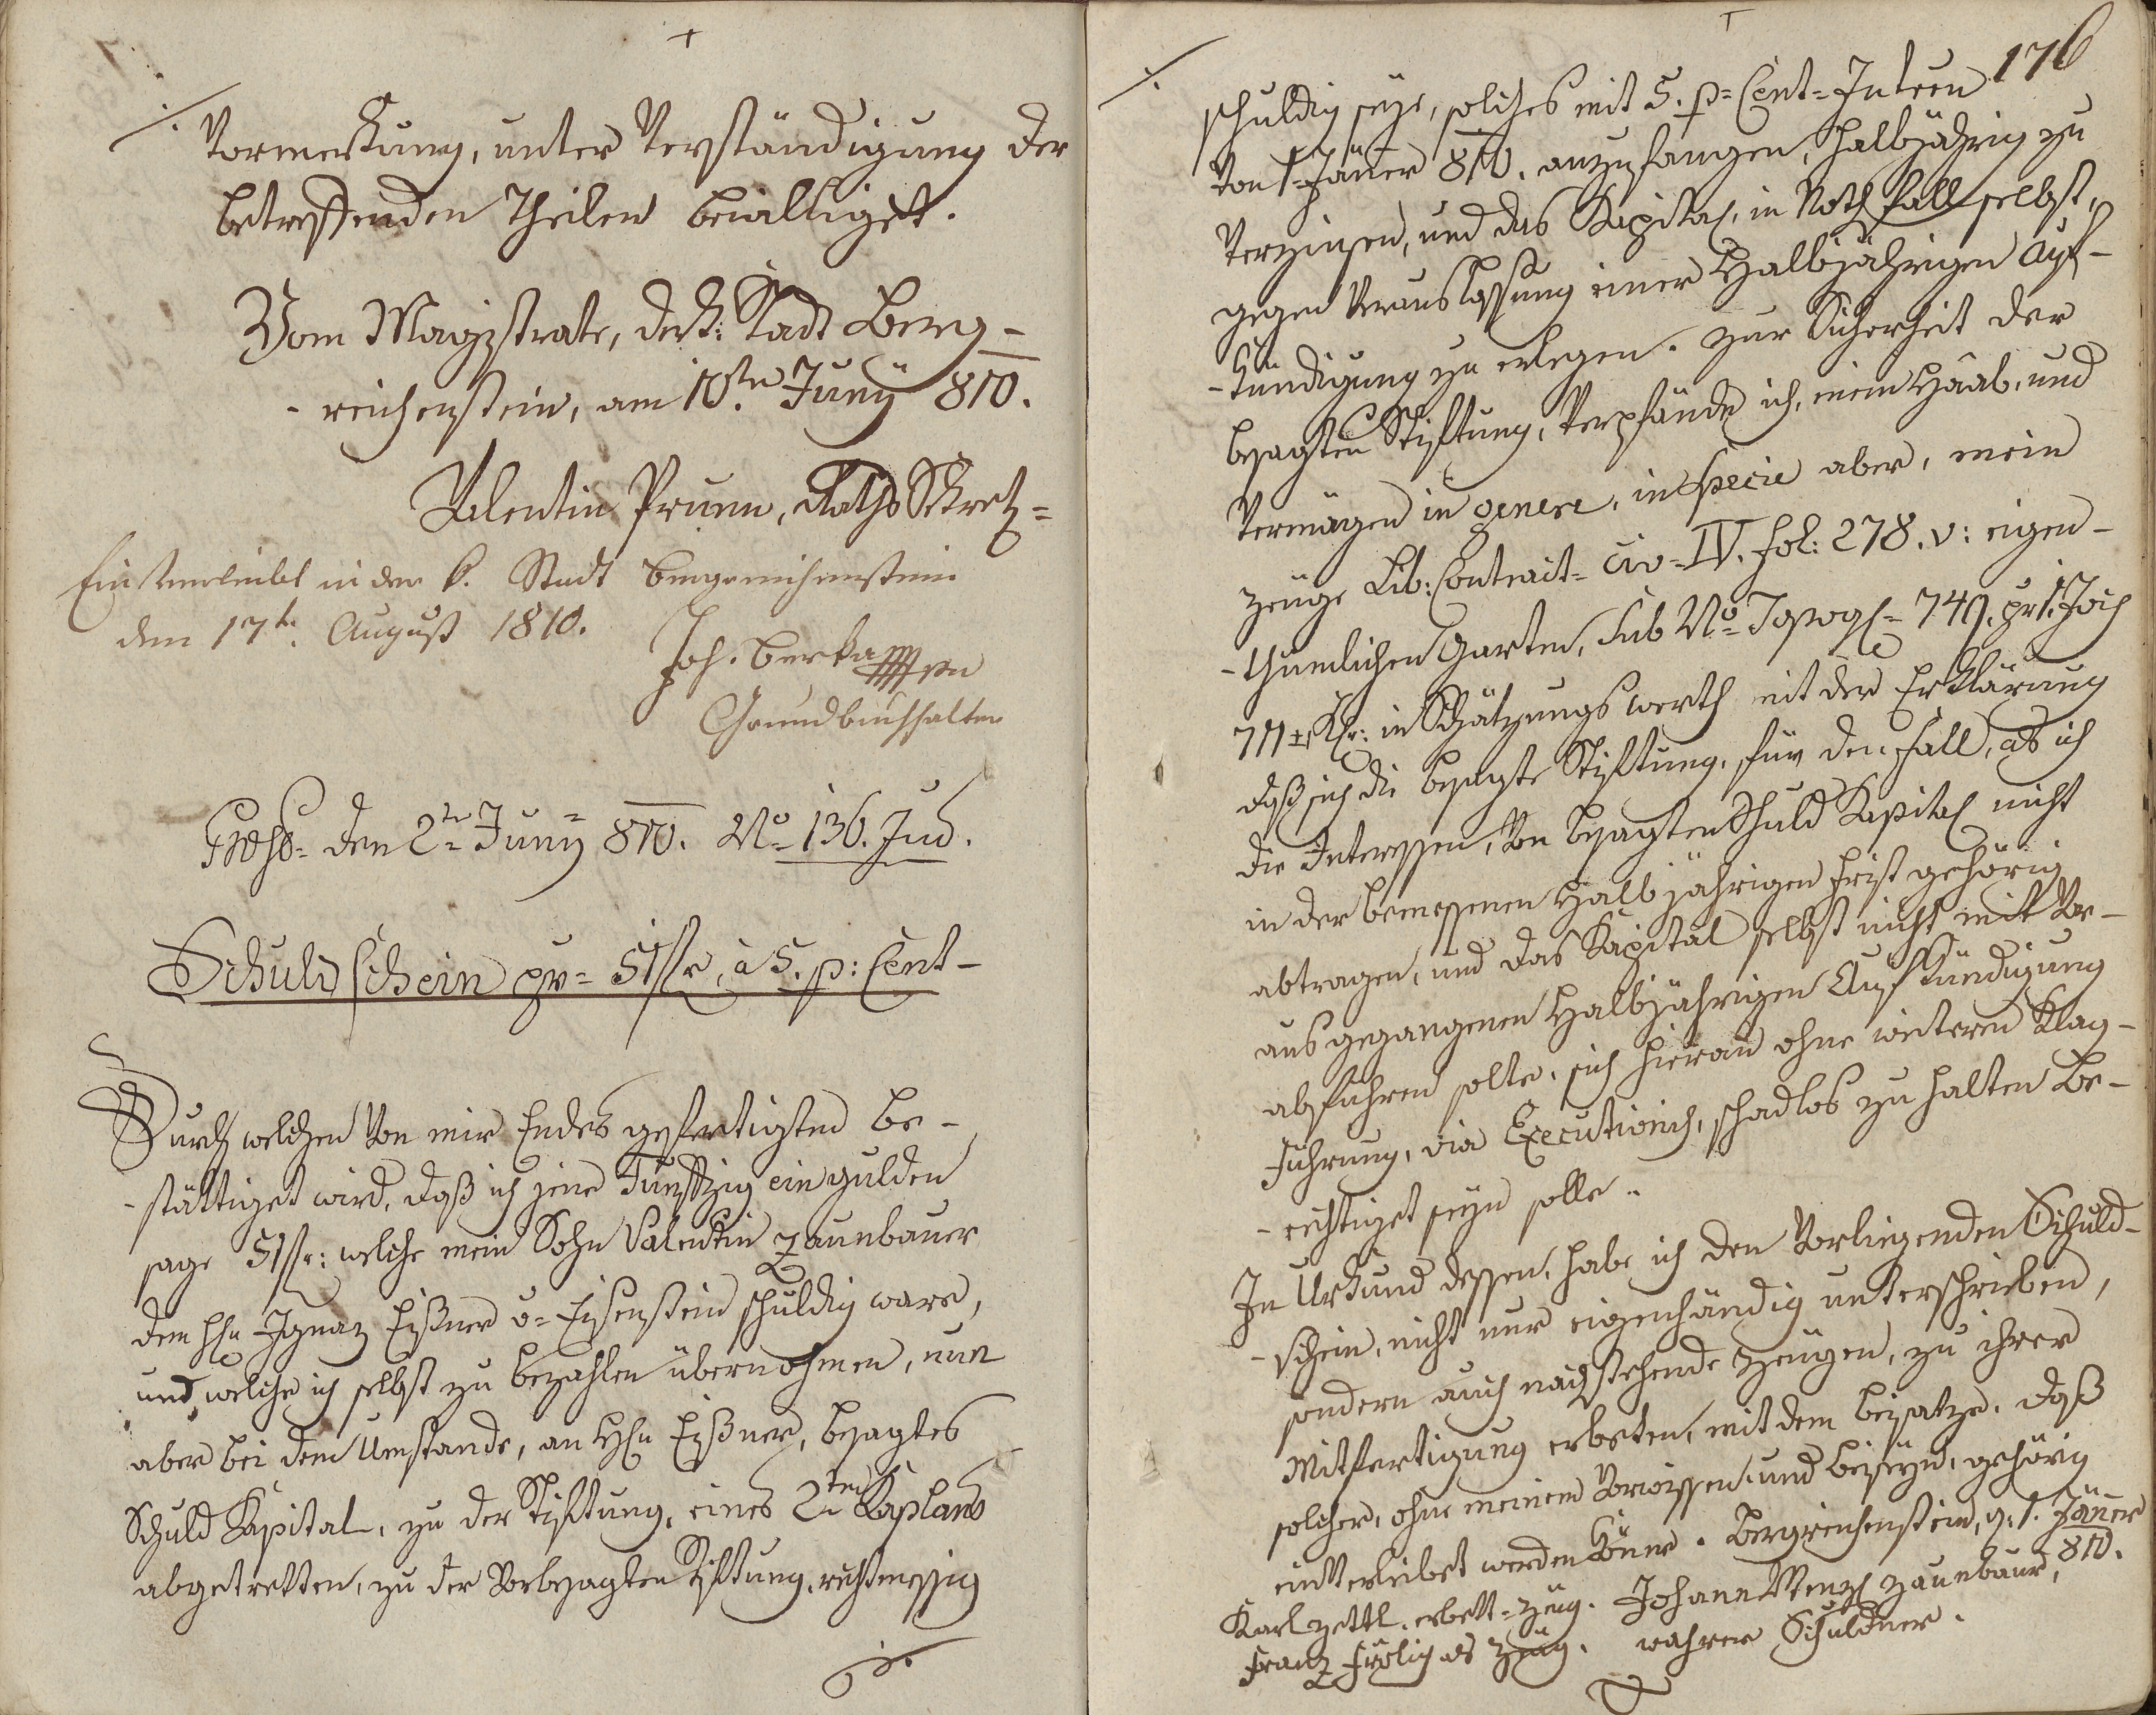 Vormerkung, unter Verständigung der
betreffenden Theilen bewilliget.
Vom Magistrate, der k: Stadt Berg-
-reichenstein, am 10.ten Juny 810.
Valentin Prunn, Raths
Einverleibt in der k. Stadt Bergreichenstein
den 17t. August 1810.
Joh. Berka
Grundbuchhalter
den 2t= Juny 810. No= 136. Jud.
Schuldschein pr= 51fr, à 5. p: Cent-
Durch welchen von mir Endes gefertigten be-
-stättiget wird, daß ich jene Funfzig ein gulden
sage 51fr: welche mein Sohn Valentin Zaunbauer
dem Hn Ignaz Eißner v= Eisenstein schuldig ware,
und welche ich selbst zu bezahlen übernohmen, nun
aber bei dem Umstande, an Hhn Eißner, besagtes
Schuld Kapital, zu der Stiftung, eines 2ten Kaplans
abgetretten, zu der vorbesagten Stiftung, rechtmessig
./.
176
./.
schuldig seye, solches mit 5. p= Cent= Intren
von 1= Jäner 810. anzufangen, halbjährig zu
verzinsen, und das Kapital, in Nothfall selbst,
gegen Vorauslassung einer Halbjährigen Auf-
-kündigung zu erlegen. Zur Sicherheit der
besagten Stiftung, verpfände ich, mein Haab, und
Vermögen in genere, in specie aber, mein
zeuge Lib: Contract= civ= IV. fol: 278. v: eigen-
-thumlichen Garten, sub No= Topog= 749. pr 1. Joch
711 in Schätzungs werth mit der Erklärung
daß sich die besagte Stiftung, für den Fall, als ich
die Interessen, von besagten Schuld Kapital nicht
in der bemessenen Halbjährigen Frist gehörig
abtragen, und das Kapital selbst nicht mit Vor-
ausgegangenen Halbjährigen Aufkündigung
abführen solte, sich hieran ohne weiteren Klag-
führung, via Executionis, schadlos zu halten be-
-rechtiget seyn solle.
In Urkund dessen, habe ich den Vorliegenden Schuld-
-schein, nicht nur eigenhändig unterschrieben,
sondern auch nachstehende Zeugen, zu ihrer
Mitfertigung erbeten, mit dem beisatze, daß
solcher, ohne meinem Vorwissen, und beiseyn, gehörig
einverleibet werden könne. Bergreichenstein, d. 1. Jäner
810.
Karl Zettl, erbett= Zeug. Johann Wenzl Zaunbaur,
Franz Frölich als Zeug. wahrer Schuldner.